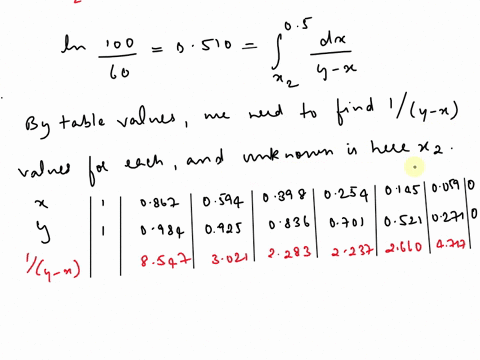 2
ln 100/60 = 0.510 = ∫_{x2}^{0.5} dx/(y-x)
By table values, we need to find 1/(y-x)
values for each, and unknown is here x2.
x | 1 | 0.867 | 0.594 | 0.398 | 0.254 | 0.145 | 0.059 | 0
y | 1 | 0.984 | 0.925 | 0.836 | 0.701 | 0.521 | 0.271 | 0
1/(y-x) | | 8.547 | 3.021 | 2.283 | 2.237 | 2.660 | 4.717 |